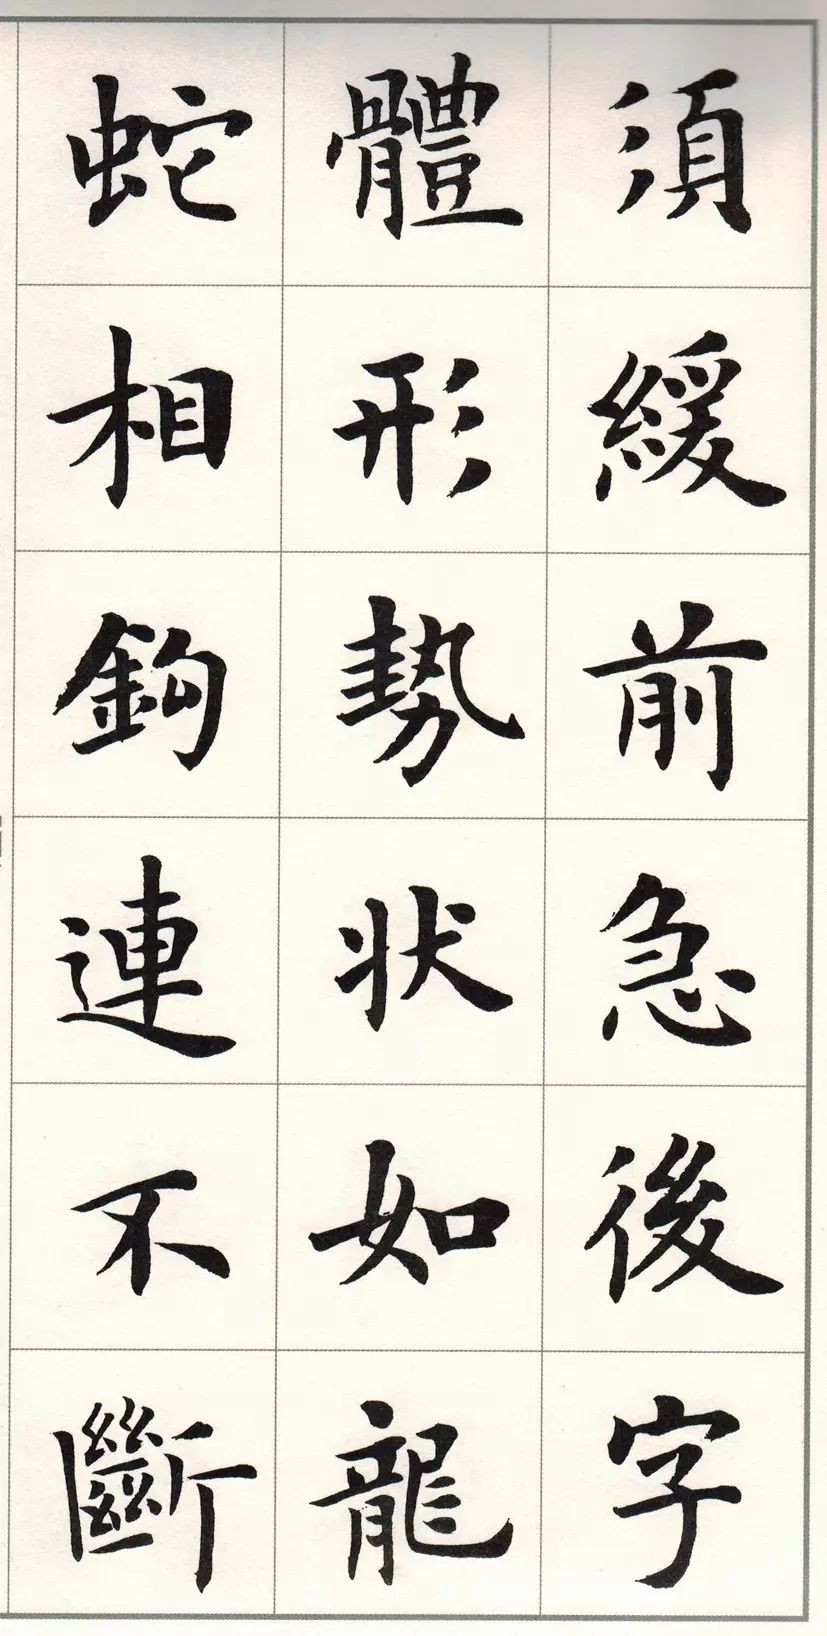 須緩前急後字
體形勢状如龍
蛇相鈎連不斷